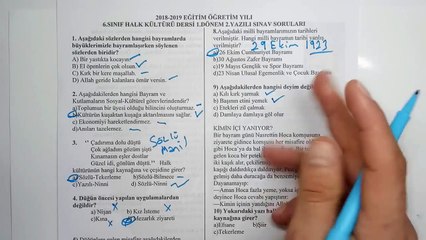 2018-2019 EĞİTİM ÖĞRETİM YILI
6.SINIF HALK KÜLTÜRÜ DERSİ 1.DÖNEM 2.YAZILI SINAV SORULARI
1. Aşağıdaki sözlerden hangisi bayramlarda
büyüklerimizle bayramlaşırken söylenen
sözlerden biridir?
a) Bir yastıkta kocayın
b) El öpenlerin çok olsun
c) Kırk bir kere maşallah.
d) Allah geride kalanlara ömür versin.
2. Aşağıdakilerden hangisi Bayram ve
Kutlamaların Sosyal-Kültürel görevlerindendir?
a) Toplumun bir üyesi olduğu bilincini oluşturmak.
b) Kültürün kuşaktan kuşağa aktarılmasını sağlar.
c) Ekonomiyi hareketlendirmez.
d) Anıları tazelemez.
3. " Çadırıma dolu düştü
Çok ağladım gözüm şişti
Kınamasın eşler dostlar
Güzel idi, gönlüm düştü." Halk
kültürünün hangi kaynağına ve çeşidine girer?
a) Sözlü-Tekerleme b) Sözlü-Bilmece
c) Yazılı-Ninni d) Sözlü-Ninni
Sözlü
Mani
4. Düğün öncesi yapılan uygulamalardan
değildir?
a) Nişan b) Kız İsteme
c) Kına d) Mezarlık ziyareti
8. Aşağıda milli bayramlarımızın tarihleri
verilmiştir. Hangi milli bayramın tarihi yanlış
verilmiştir?
29 Ekim 1923
a) 26 Ekim Cumhuriyet Bayramı
b) 30 Ağustos Zafer Bayramı
c) 19 Mayıs Gençlik ve Spor Bayramı
d) 23 Nisan Ulusal Egemenlik ve Çocuk Bayramı
9) Aşağıdakilerden hangisi deyim değil
a) Kılı kırk yarmak
b) Başının etini yemek
c) Etekleri zil çalmak
d) Damlaya damlaya göl olur
KİMİN İÇİ YANIYOR?
Bir bayram günü Nasrettin Hoca komşusunu
10) Yukarıdaki yazı halk
kaynağına girer?
a) Efsane
c) Tekerleme